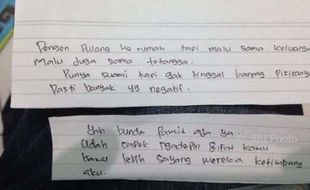 Pengen Pulang ke rumah tapi malu sama keluarga
Malu juga sama tetangga.
Punya suami tapi gak tinggal bareng Pikiranya
Pasti banyak yg negatif.
Yah bunda Pamit aja ya..
Udah capek ngadepin sifat kamu
kamu lebih sayang mereka ketimbang
aku.